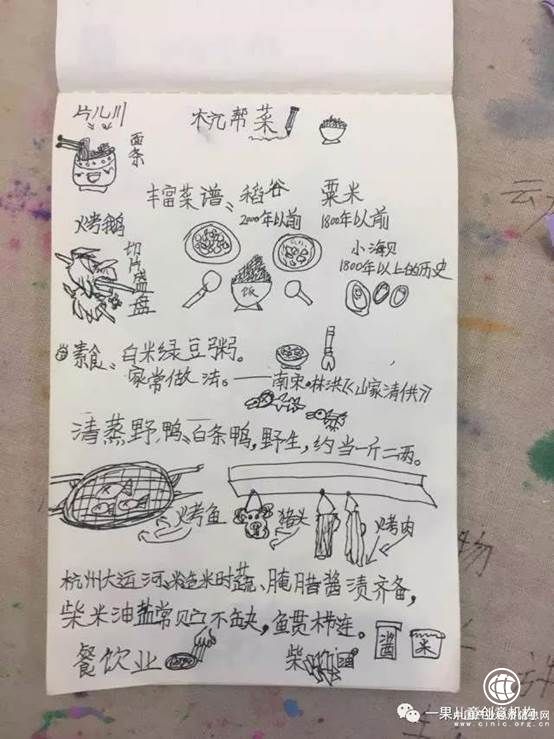 片儿川
杭帮菜
面条
丰富菜谱: 稻谷 粟米
2000年以前 1800年以前
烤鹅
切片盛盘
小海贝
1800年以上的历史
饭
素食: 白米绿豆粥。
家常做法。——南宋·林洪《山家清供》
清蒸野鸭: 白条鸭,野生,约当一斤二两。
烤鱼
猪头
烤肉
杭州大运河: 米时蔬、腌腊酱渍齐备,
柴米油盐常见不缺,鱼贯相连。
酱
菜
餐饮业
柴
一果儿童创意机构
www.cinic.org.cn